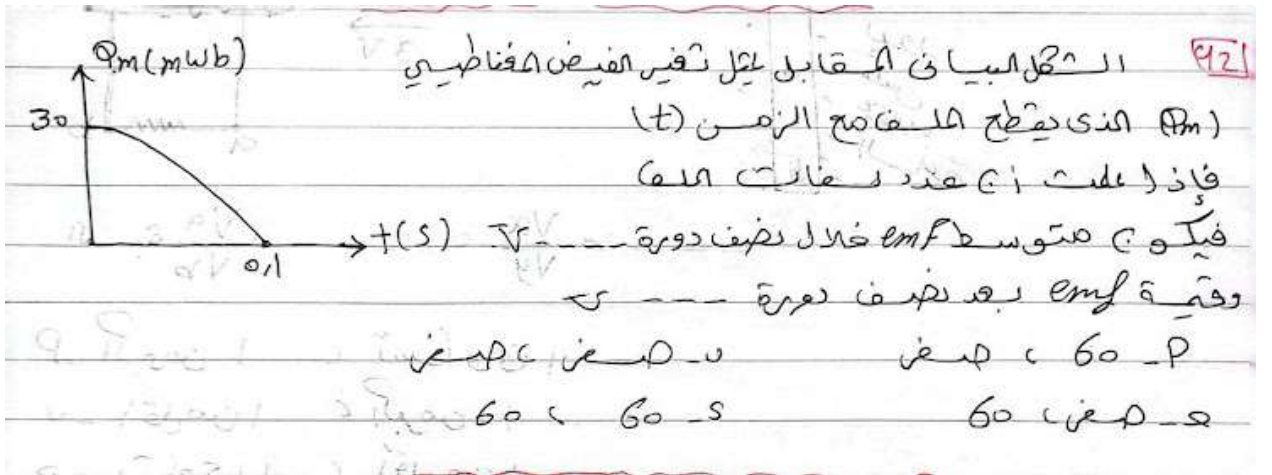 92 الشكل البياني المقابل يمثل تغير الفيض المغناطيسي
(Φm) الذي يقطع الملف مع الزمن (t)
فإذا علمت أن عدد لفات الملف
فيكون متوسط emf خلال نصف دورة ---- V
وقيمة emf بعد نصف دورة --- v
P- 60 ، صفر
ب- صفر ، صفر
ج- صفر ، 60
د- 60 ، 60
Φm (mwb)
30
0,1
t(s)